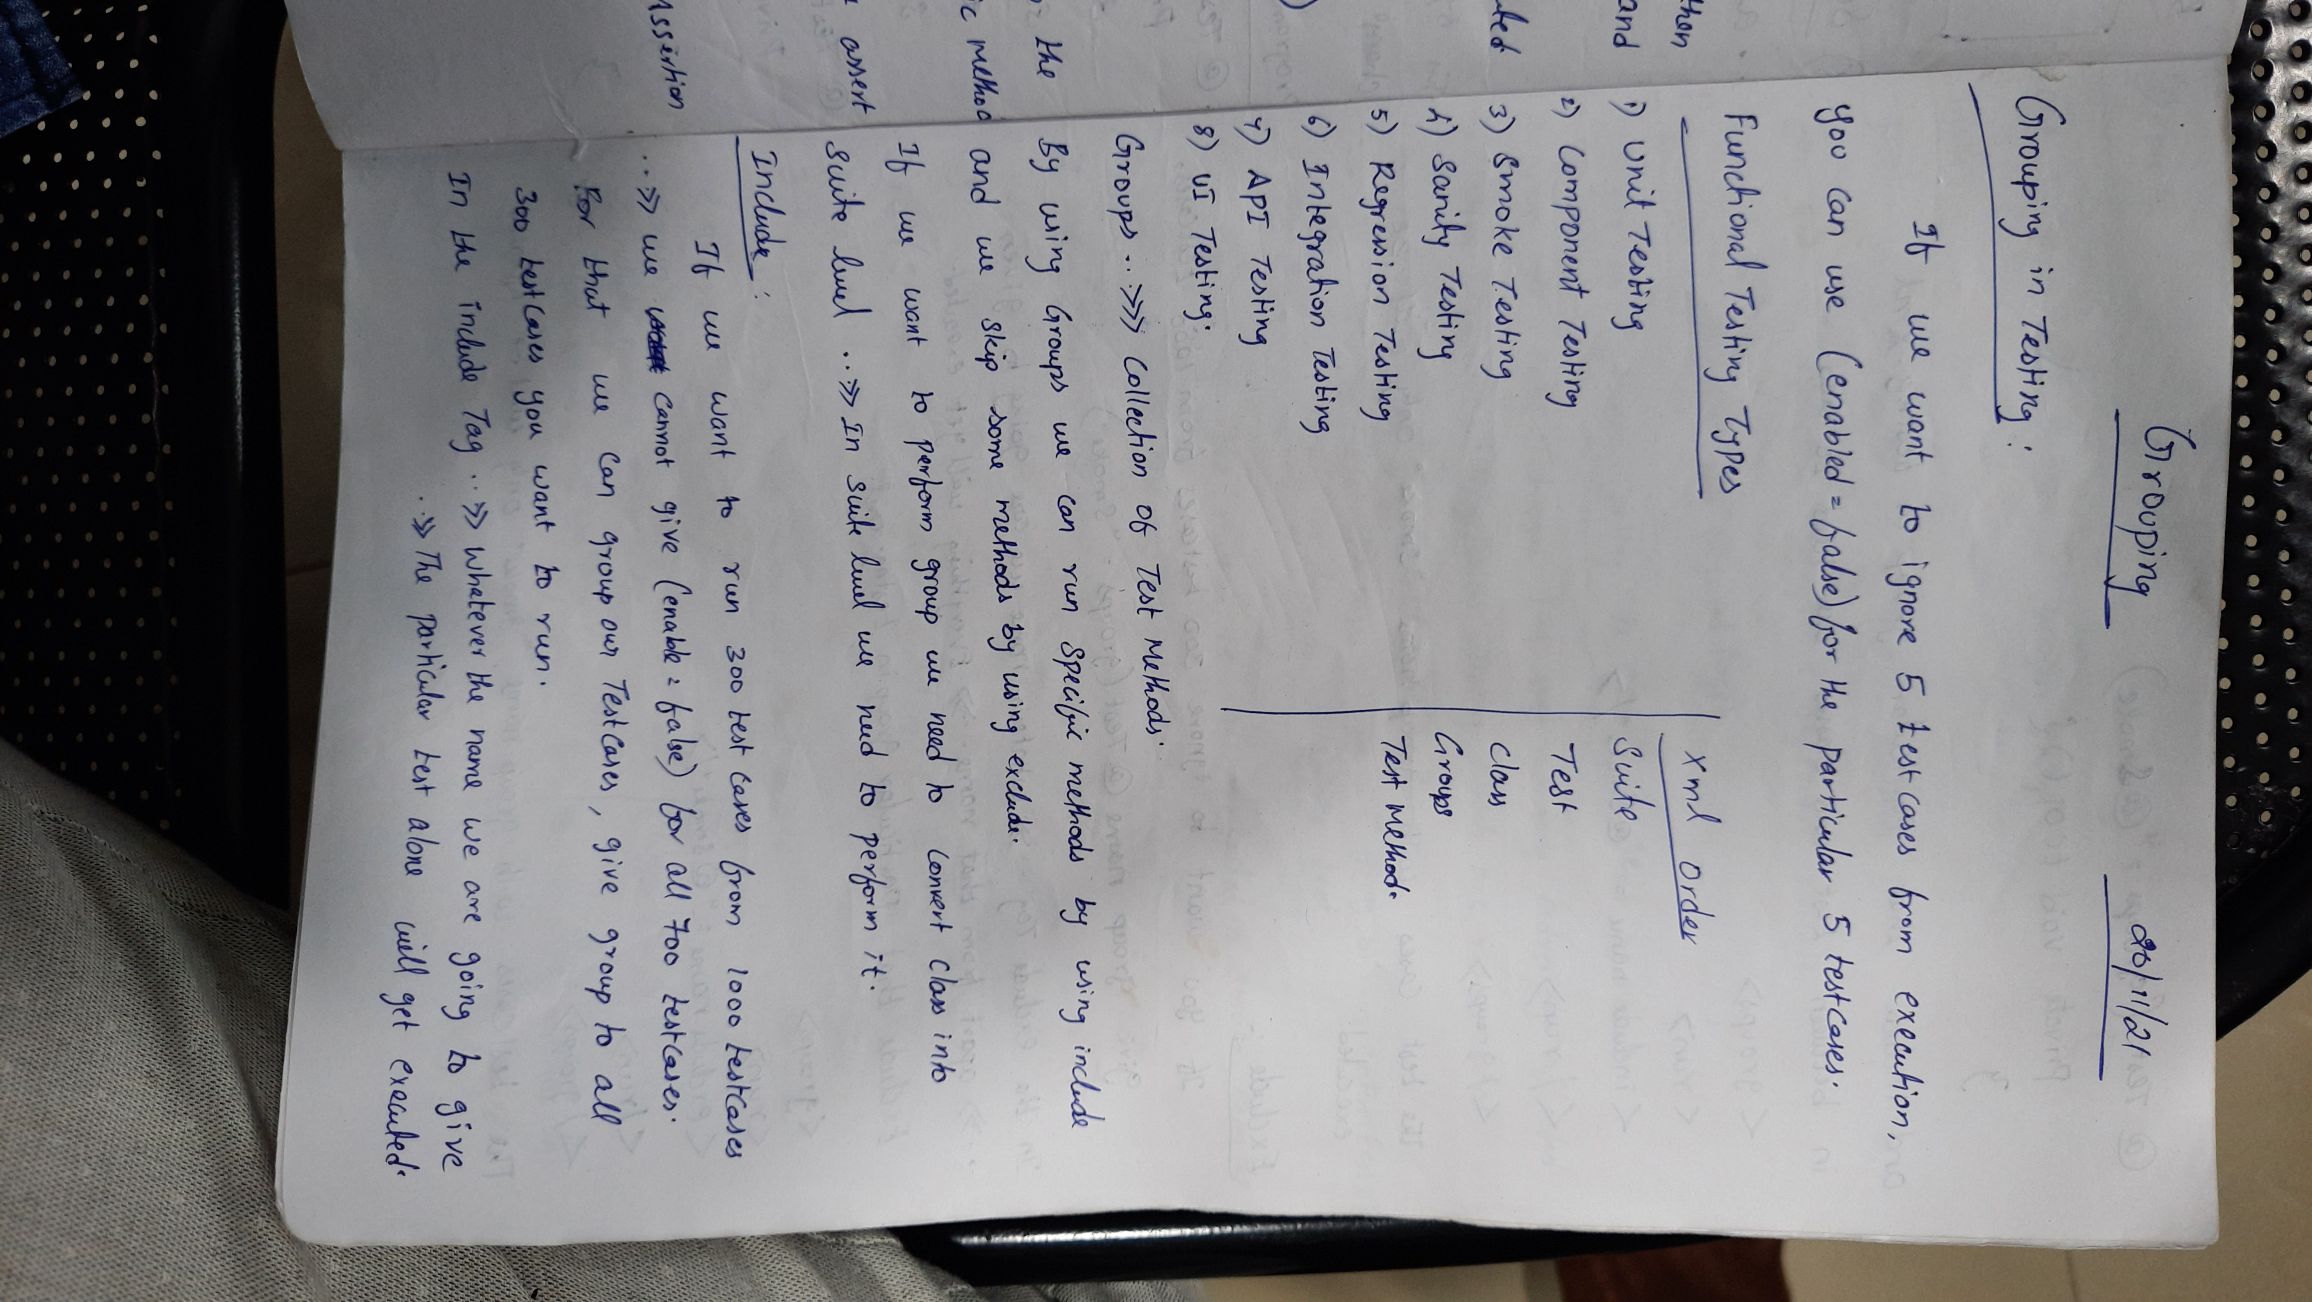 Grouping
20/11/21
Grouping in Testing:
If we want to ignore 5 testcases from execution,
you can use (enabled = false) for the particular 5 testcases.
Functional Testing Types
1) Unit Testing
2) Component Testing
3) Smoke Testing
4) Sanity Testing
5) Regression Testing
6) Integration Testing
7) API Testing
8) UI Testing.
Xml Order
Suite
Test
Class
Groups
Test Method.
Groups ..>>> Collection of Test Methods.
By using Groups we can run specific methods by using include
and we skip some methods by using exclude.
If we want to perform group we need to convert class into
suite level ..>> In suite level we need to perform it.
Include:
If we want to run 300 test cases from 1000 testcases
..>> we cannot give (enable = false) for all 700 testcases.
For that we can group our Testcases, give group to all
300 testcases you want to run.
In the include Tag ..>> whatever the name we are going to give
..>> The particular test alone will get executed.
and
the
ic method
assert
Assertion